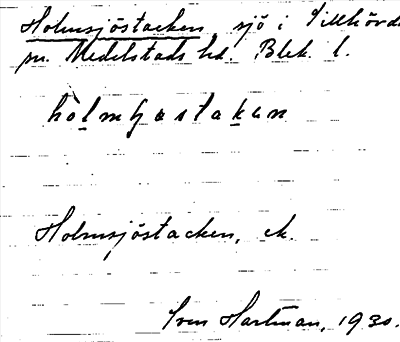 Holmsjöstacken sjö i Tillhövda
sn. Medelstads hd. Blek. l.
hòlmʃøstakən
Holmsjöstacken, ek.
Sven Hartman, 1930.